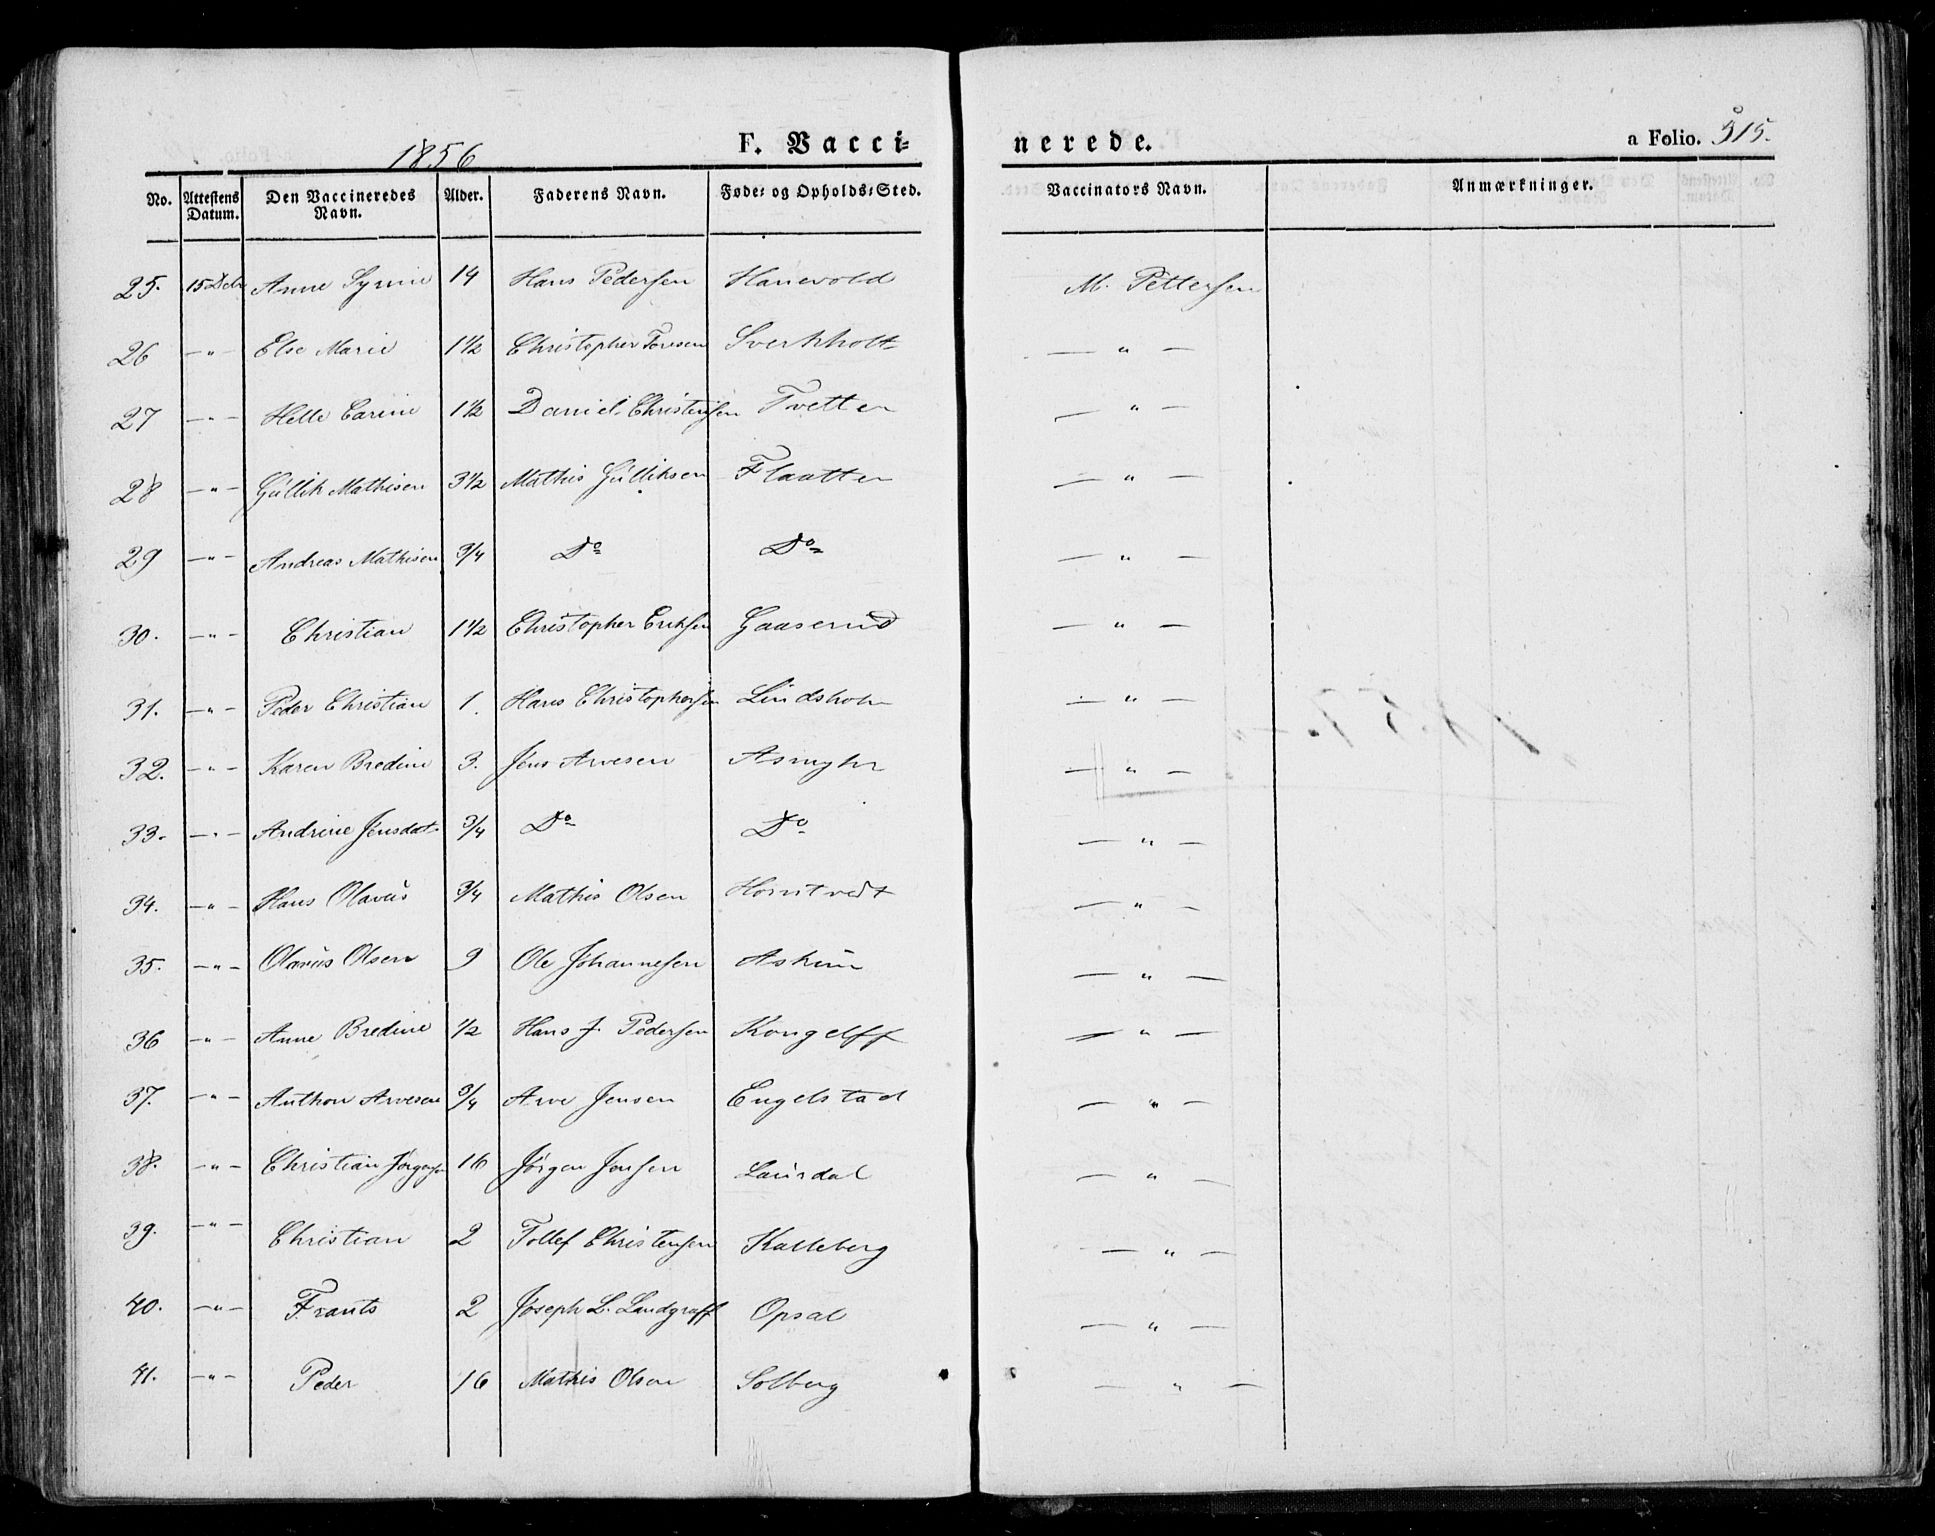 1856 F. Vacci= nerede. a Folio. 315.
No. Attestens Datum. Den Vaccineredes Navn. Alder. Faderens Navn. Føde= og Opholds=Sted. Vaccinators Navn. Anmærkninger.
25. 15 Debr Anne Syrine 14 Hans Pedersen Hanevold M. Pettersen
26 —"— Else Marie 1½ Christopher Toresen Sverkholt —"—
27 —"— Helle Carine 1½ Daniel Christensen Tvetten —"—
28 —"— Gullik Mathisen 3½ Mathis Gulliksen Flaatten —"—
29 —"— Andreas Mathisen ¾ Do Do —"—
30. —"— Christian 1½ Christopher Eriksen Gaaserud —"—
31. —"— Peder Christian 1. Hans Christophersen Lindsholm —"—
32. —"— Karen Bredine 3. Jens Arvesen Asmyhr —"—
33. —"— Andrine Jensdat. ¾ Do Do —"—
34. —"— Hans Olavus ¾ Mathis Olsen Horntvedt —"—
35. —"— Olavus Olsen 9 Ole Johannesen Askim —"—
36 —"— Anne Bredine ½ Hans J. Pedersen Kongelff —"—
37. —"— Anthon Arvesen ¾ Arve Jensen Engelstad —"—
38. —"— Christian Jørgensen 16 Jørgen Jensen Laurdal —"—
39. —"— Christian 2 Tollef Christensen Kalleberg —"—
40. —"— Frants 2 Joseph L. Landgraff Opsal —"—
41. —"— Peder 16 Mathis Olsen Solberg —"—